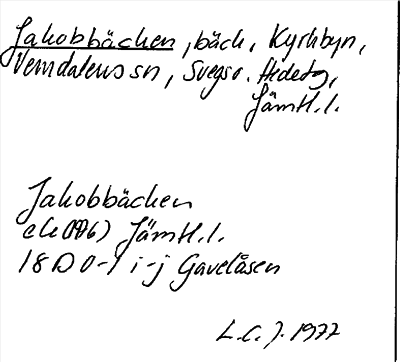 Jakobbäcken, bäck, Kyrkbyn,
Vemdalens sn, Svegs o. Hedetg,
Jämtl.l.
Jakobbäcken
ek (1976) Jämtl.l.
18D 0-1 i-j Gavelåsen
L.C.J. 1977